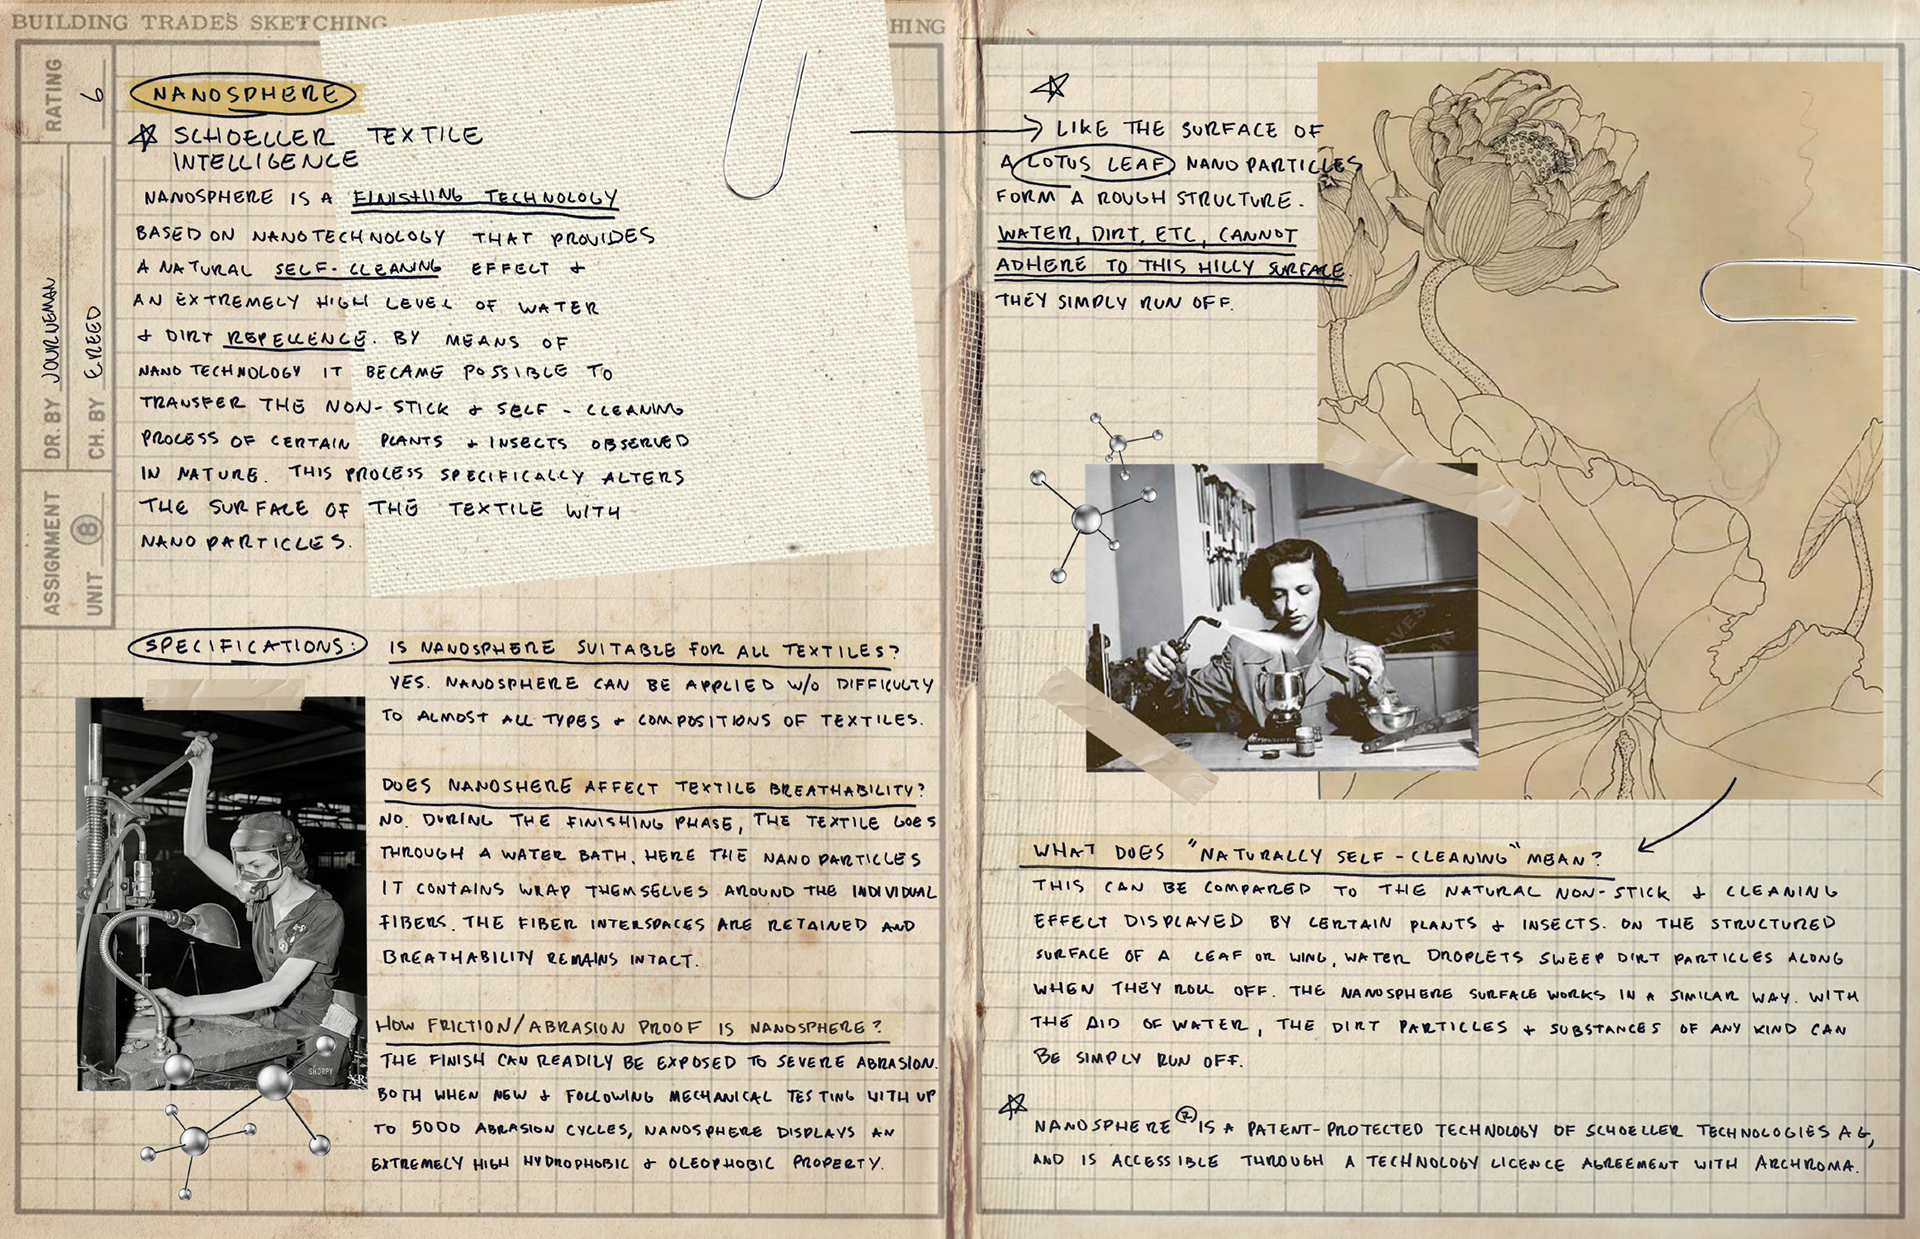 BUILDING TRADES SKETCHING
HING
RATING
6
DR. BY JOURNEMAN
CH. BY E.REED
ASSIGNMENT
UNIT 8
NANOSPHERE
SCHOELLER TEXTILE
INTELLIGENCE
NANOSPHERE IS A FINISHING TECHNOLOGY
BASED ON NANOTECHNOLOGY THAT PROVIDES
A NATURAL SELF-CLEANING EFFECT &
AN EXTREMELY HIGH LEVEL OF WATER
& DIRT REPELLENCE. BY MEANS OF
NANO TECHNOLOGY IT BECAME POSSIBLE TO
TRANSFER THE NON-STICK & SELF-CLEANING
PROCESS OF CERTAIN PLANTS & INSECTS OBSERVED
IN NATURE. THIS PROCESS SPECIFICALLY ALTERS
THE SURFACE OF THE TEXTILE WITH
NANO PARTICLES.
SPECIFICATIONS:
IS NANOSPHERE SUITABLE FOR ALL TEXTILES?
YES. NANOSPHERE CAN BE APPLIED W/O DIFFICULTY
TO ALMOST ALL TYPES & COMPOSITIONS OF TEXTILES.
DOES NANOSHERE AFFECT TEXTILE BREATHABILITY?
NO. DURING THE FINISHING PHASE, THE TEXTILE GOES
THROUGH A WATER BATH. HERE THE NANO PARTICLES
IT CONTAINS WRAP THEMSELVES AROUND THE INDIVIDUAL
FIBERS. THE FIBER INTERSPACES ARE RETAINED AND
BREATHABILITY REMAINS INTACT.
HOW FRICTION/ABRASION PROOF IS NANOSPHERE?
THE FINISH CAN READILY BE EXPOSED TO SEVERE ABRASION.
BOTH WHEN NEW & FOLLOWING MECHANICAL TESTING WITH UP
TO 5000 ABRASION CYCLES, NANOSPHERE DISPLAYS AN
EXTREMELY HIGH HYDROPHOBIC & OLEOPHOBIC PROPERTY.
SHORPY
XR
LIKE THE SURFACE OF
A LOTUS LEAF NANO PARTICLES
FORM A ROUGH STRUCTURE.
WATER, DIRT, ETC, CANNOT
ADHERE TO THIS HILLY SURFACE.
THEY SIMPLY RUN OFF.
WHAT DOES "NATURALLY SELF-CLEANING" MEAN?
THIS CAN BE COMPARED TO THE NATURAL NON-STICK & CLEANING
EFFECT DISPLAYED BY CERTAIN PLANTS & INSECTS. ON THE STRUCTURED
SURFACE OF A LEAF OR WING, WATER DROPLETS SWEEP DIRT PARTICLES ALONG
WHEN THEY ROLL OFF. THE NANOSPHERE SURFACE WORKS IN A SIMILAR WAY. WITH
THE AID OF WATER, THE DIRT PARTICLES & SUBSTANCES OF ANY KIND CAN
BE SIMPLY RUN OFF.
NANOSPHERE® IS A PATENT-PROTECTED TECHNOLOGY OF SCHOELLER TECHNOLOGIES AG,
AND IS ACCESSIBLE THROUGH A TECHNOLOGY LICENCE AGREEMENT WITH ARCHROMA.